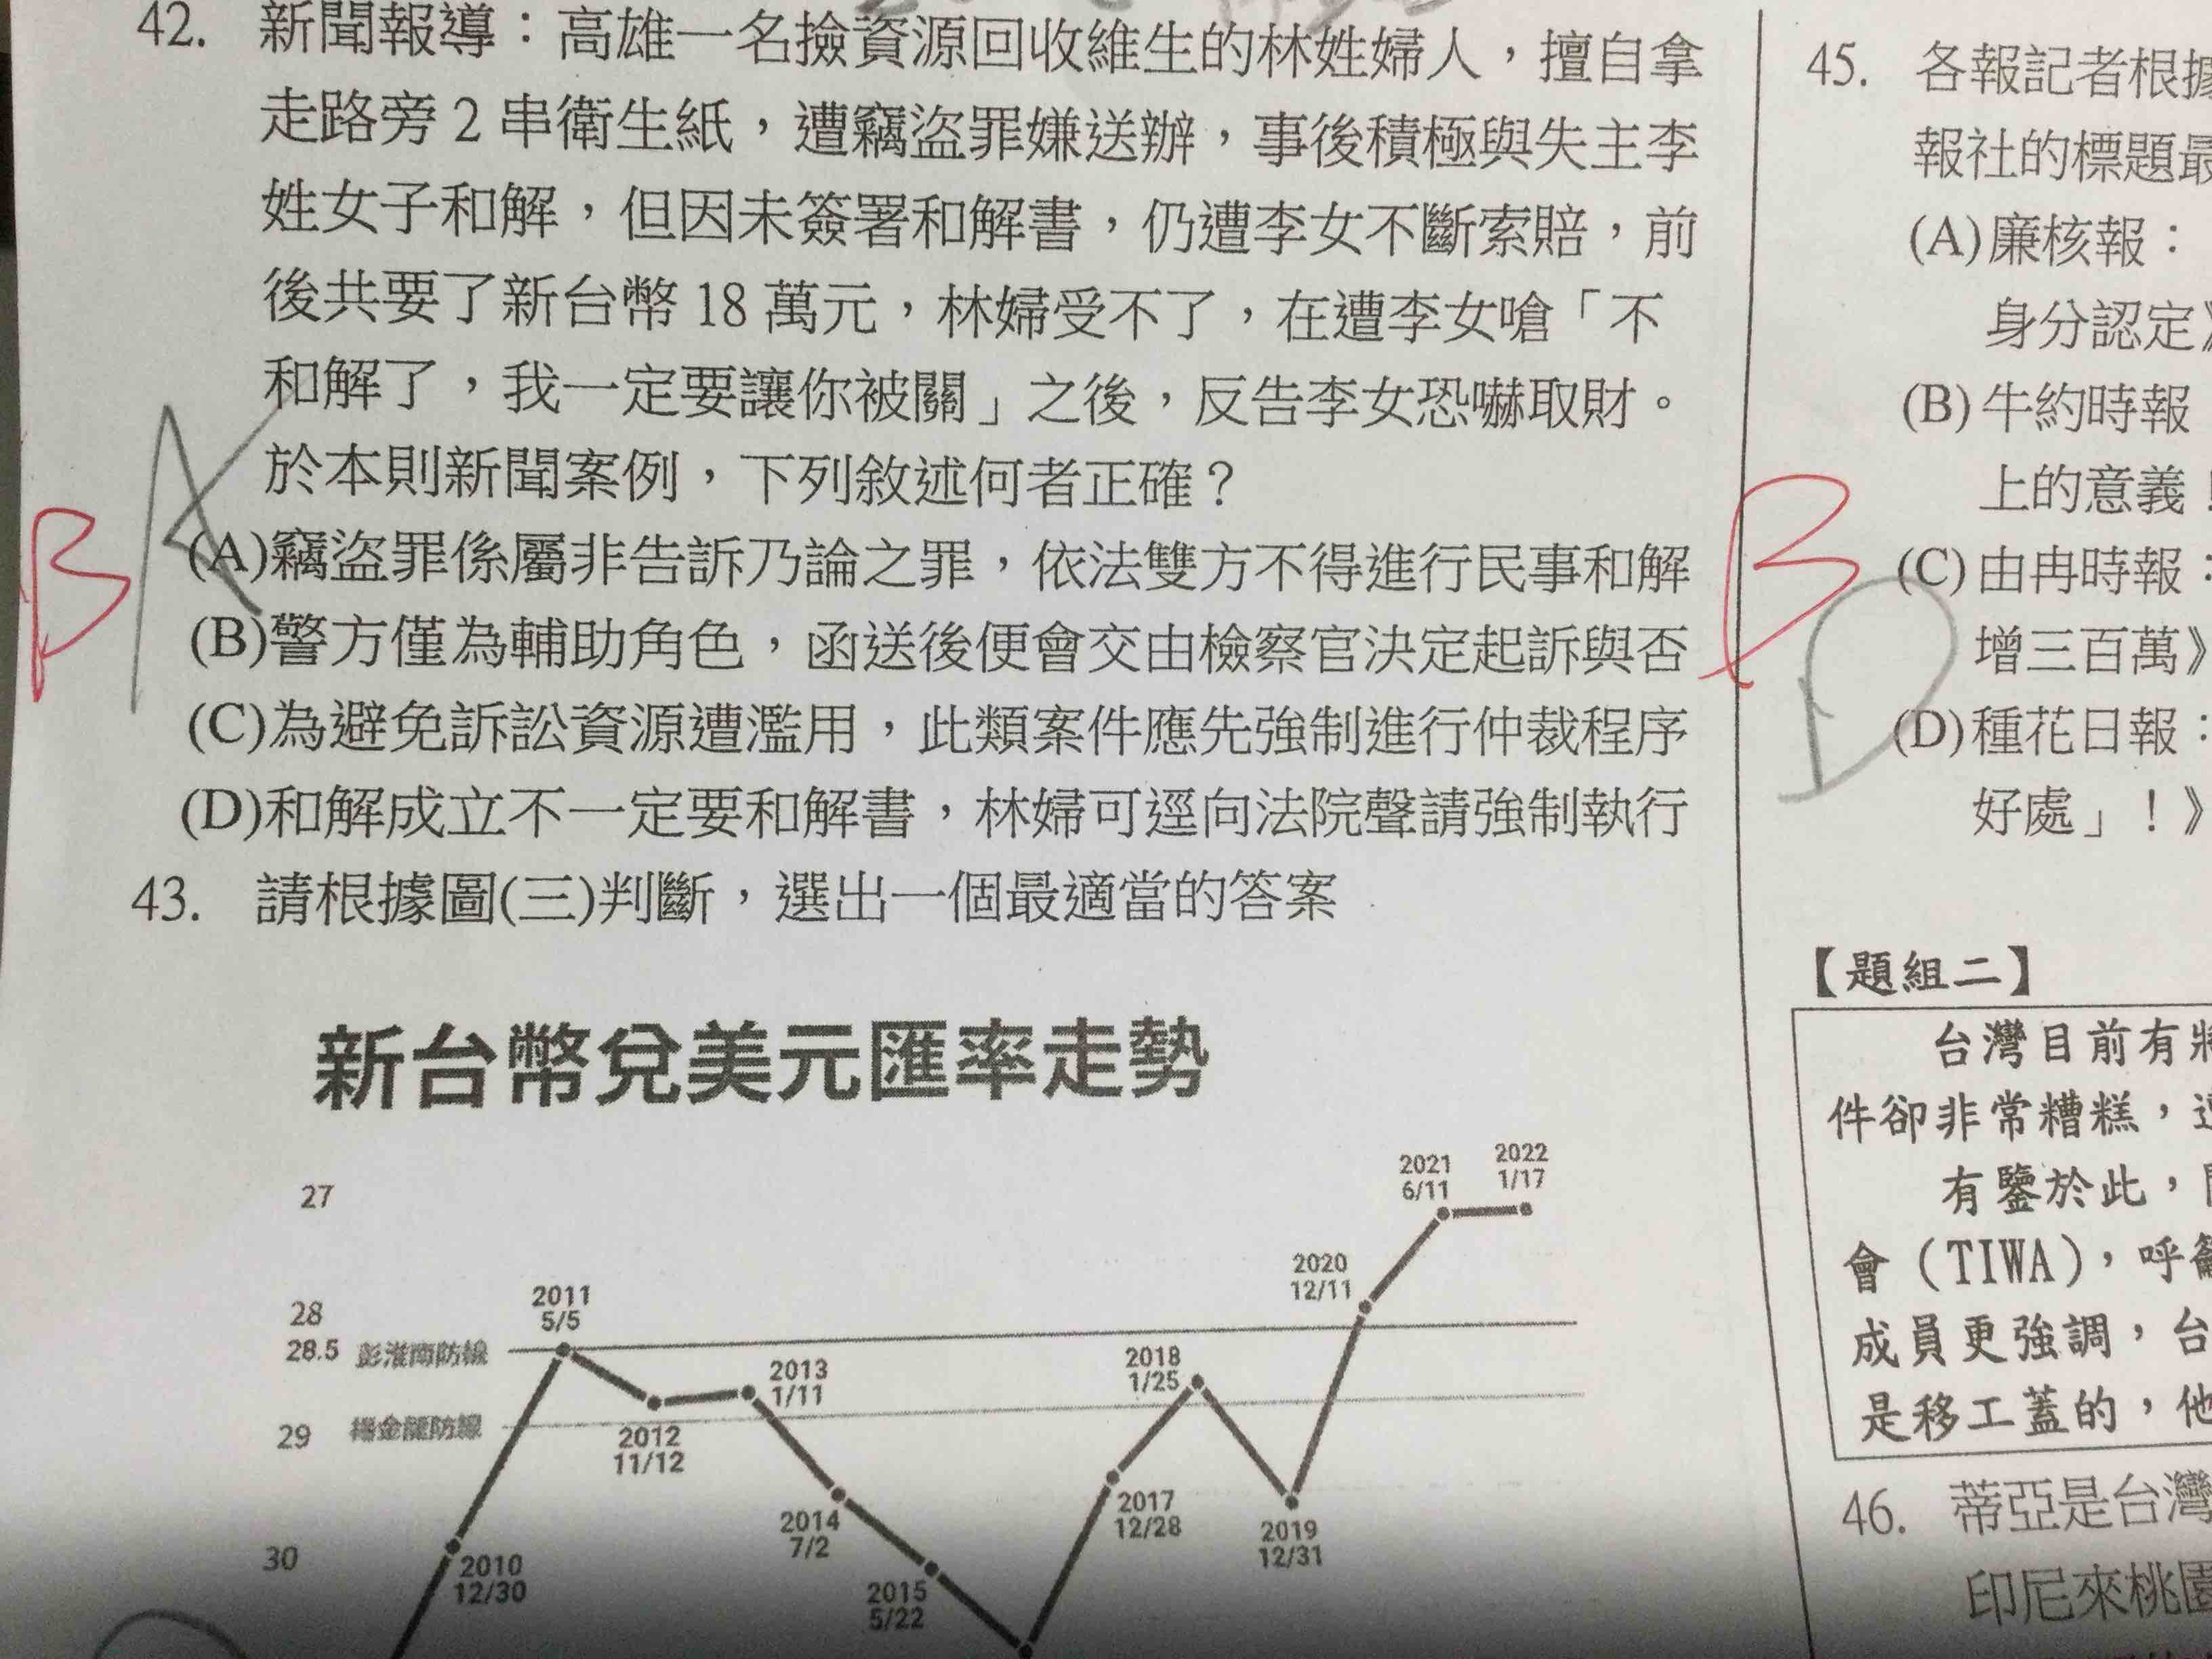 42. 新聞報導：高雄一名撿資源回收維生的林姓婦人，擅自拿
走路旁2串衛生紙，遭竊盜罪嫌送辦，事後積極與失主李
姓女子和解，但因未簽署和解書，仍遭李女不斷索賠，前
後共要了新台幣18萬元，林婦受不了，在遭李女嗆「不
和解了，我一定要讓你被關」之後，反告李女恐嚇取財。
於本則新聞案例，下列敘述何者正確？
(A)竊盜罪係屬非告訴乃論之罪，依法雙方不得進行民事和解
(B)警方僅為輔助角色，函送後便會交由檢察官決定起訴與否
(C)為避免訴訟資源遭濫用，此類案件應先強制進行仲裁程序
(D)和解成立不一定要和解書，林婦可逕向法院聲請強制執行
B
A
43. 請根據圖(三)判斷，選出一個最適當的答案
新台幣兌美元匯率走勢
27
28
28.5 彭淮南防線
29 楊金龍防線
30
2010
12/30
2011
5/5
2012
11/12
2013
1/11
2014
7/2
2015
5/22
2017
12/28
2018
1/25
2019
12/31
2020
12/11
2021
6/11
2022
1/17
B
D
45. 各報記者根據
報社的標題最
(A)廉核報：
身分認定》
(B)牛約時報
上的意義！
(C)由冉時報：
增三百萬》
(D)種花日報：
好處」！》
【題組二】
台灣目前有將
件卻非常糟糕，
有鑒於此，
會（TIWA），呼籲
成員更強調，台
是移工蓋的，他
46. 蒂亞是台灣
印尼來桃園